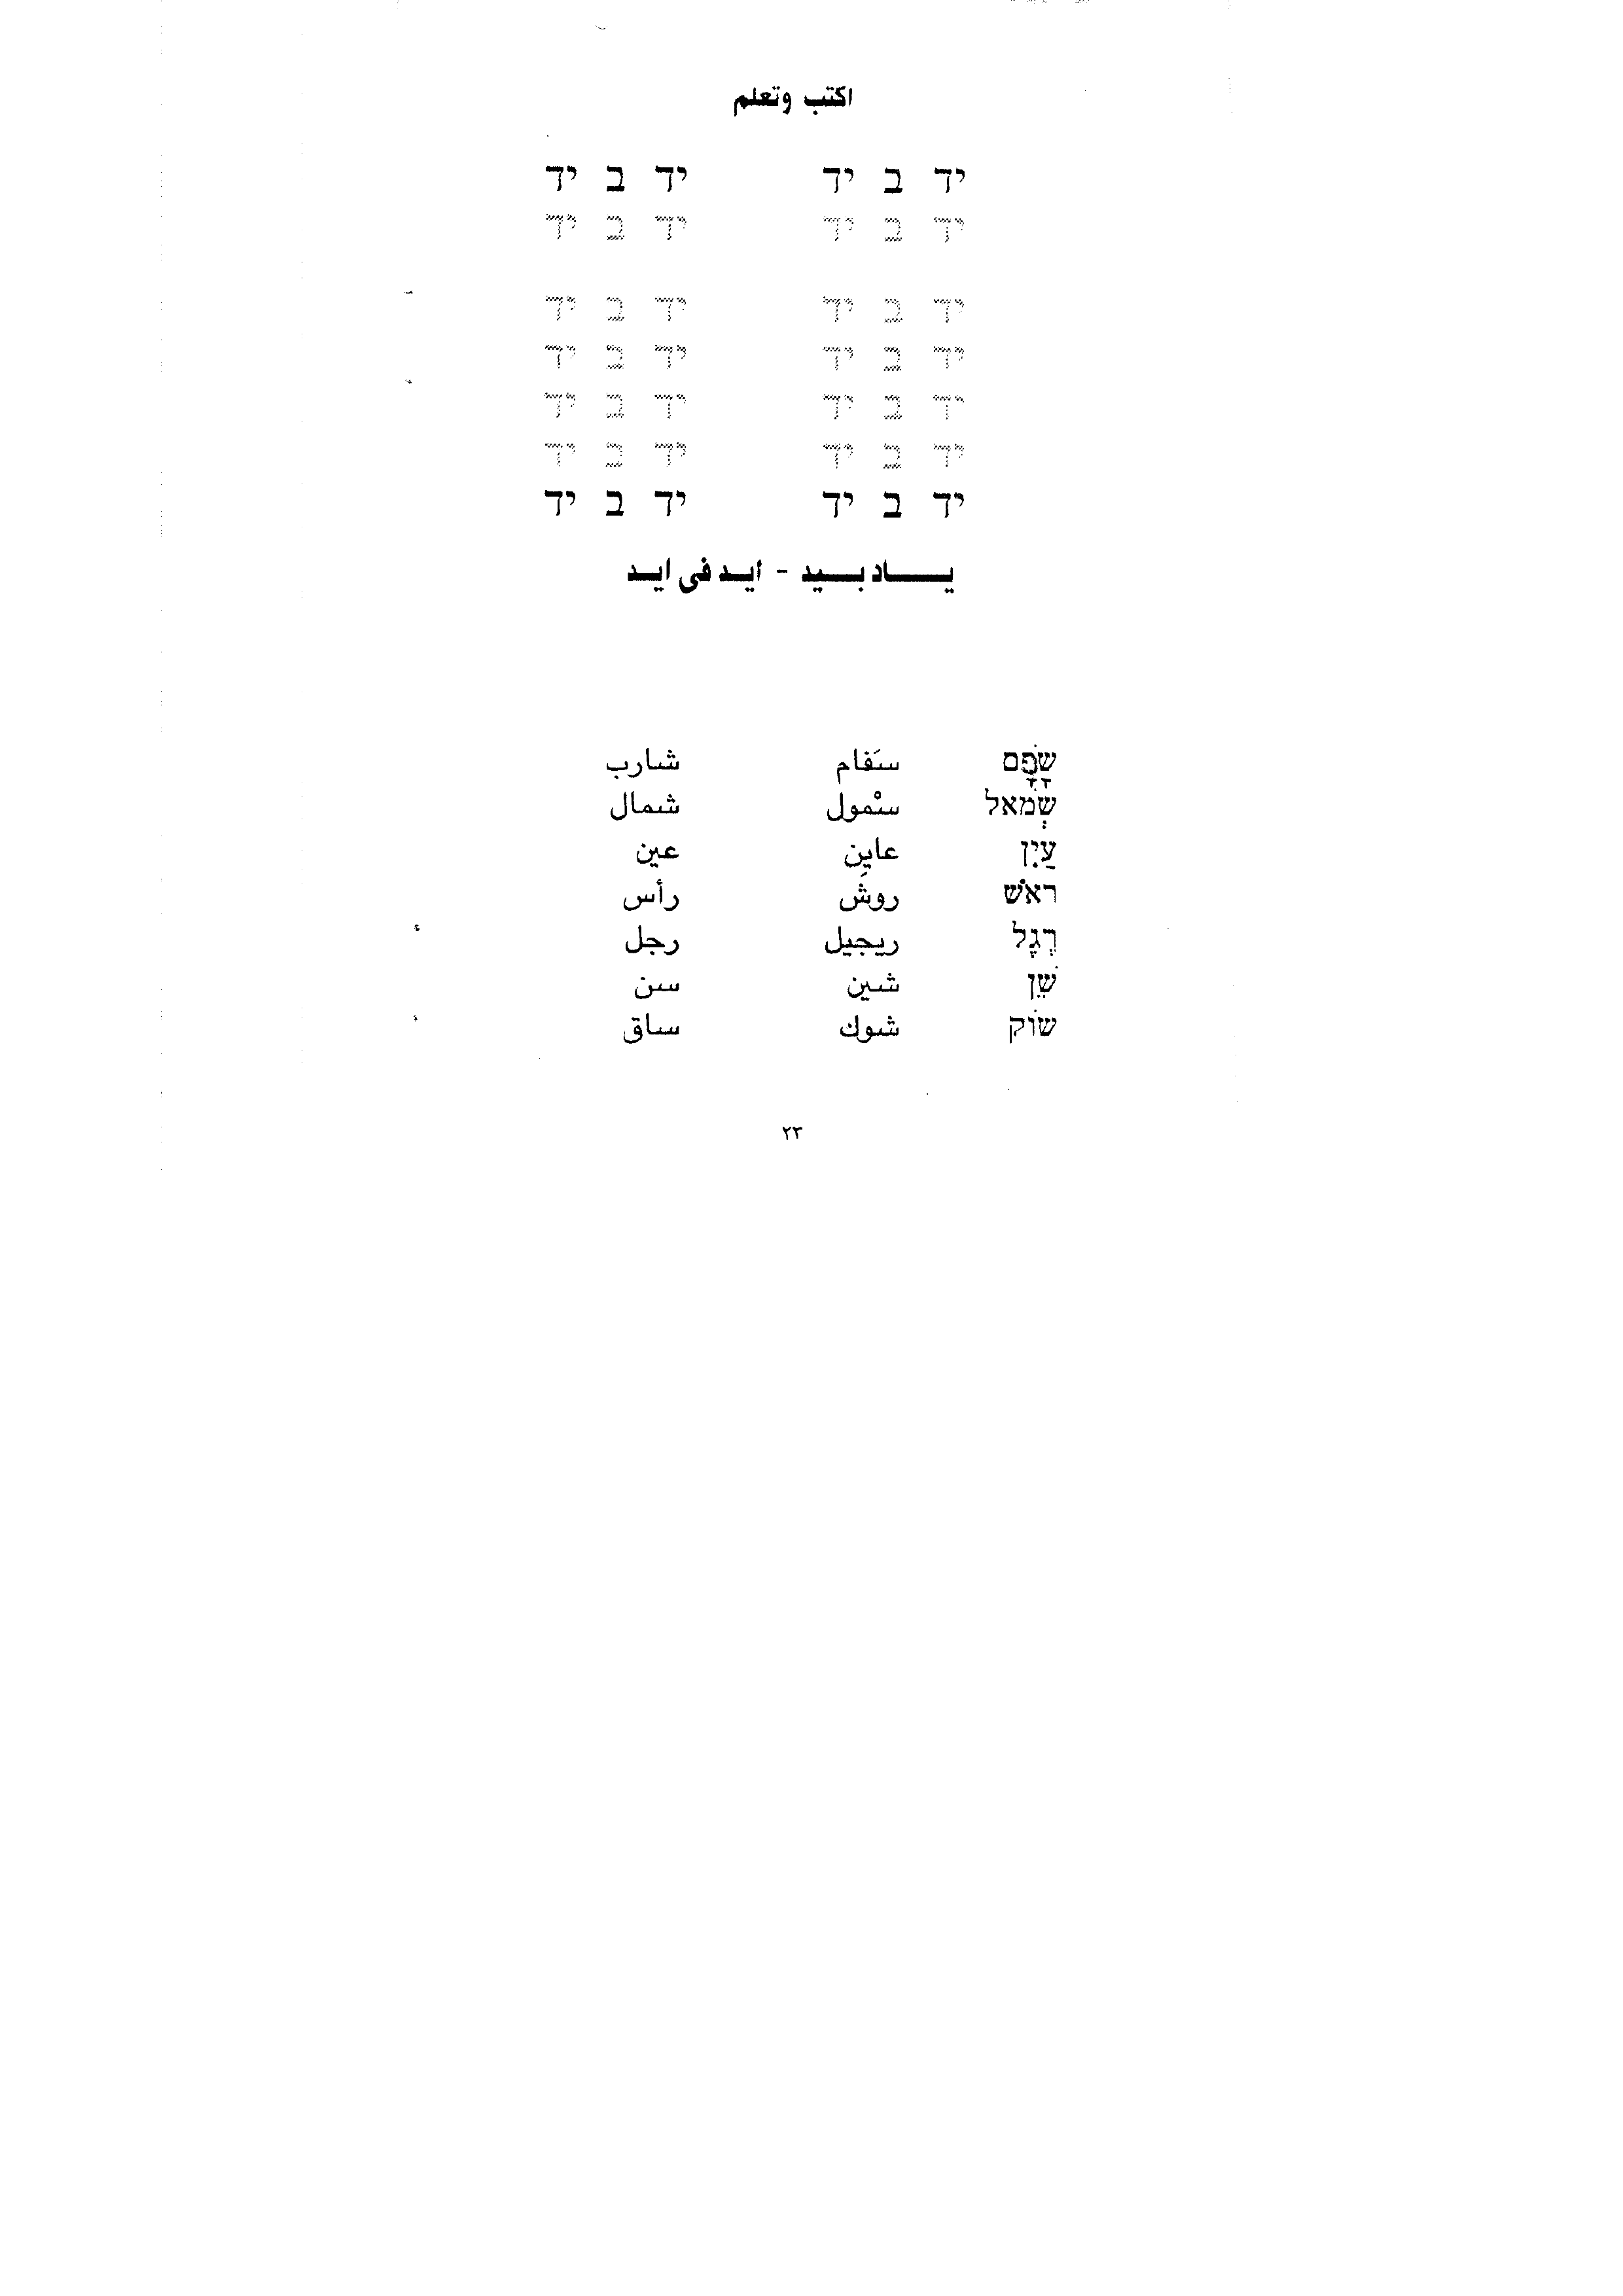 اكتب وتعلم
יד ב יד יד ב יד
יד ב יד יד ב יד
יד ב יד יד ב יד
יד ב יד יד ב יד
יד ב יד יד ב יד
יד ב יד יד ב יד
יד ב יד יד ב יד
يـــاد بـيد - ايـد فى ايـد
שָׂפָם سَفام شارب
שְׂמֹאל سْمول شمال
עַיִן عايِن عين
ראֹשׁ روشَ رأس
רֶגֶל ريجيل رجل
שֵׁן شين سن
שׁוֹק شوك ساق
٢٣